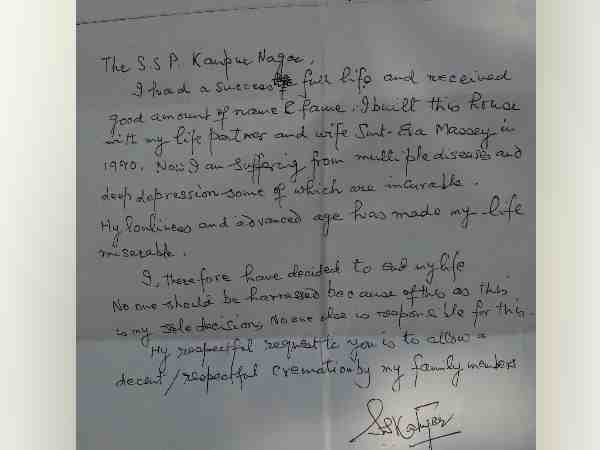 The S.S P. Kanpur Nagar,
I had a success full life and received
good amount of name & fame. I built this house
with my life partner and wife Smt- Eva Massey in
1970. Now I am suffering from multiple diseases and
deep depression some of which are incurable.
My lonliness and advanced age has made my life
miserable.
I, therefore have decided to end my life
No one should be harrassed because of this as this
is my sole decision, No one else is responsible for this.
My respectful request to you is to allow a
decent/respectful cremation by my family members